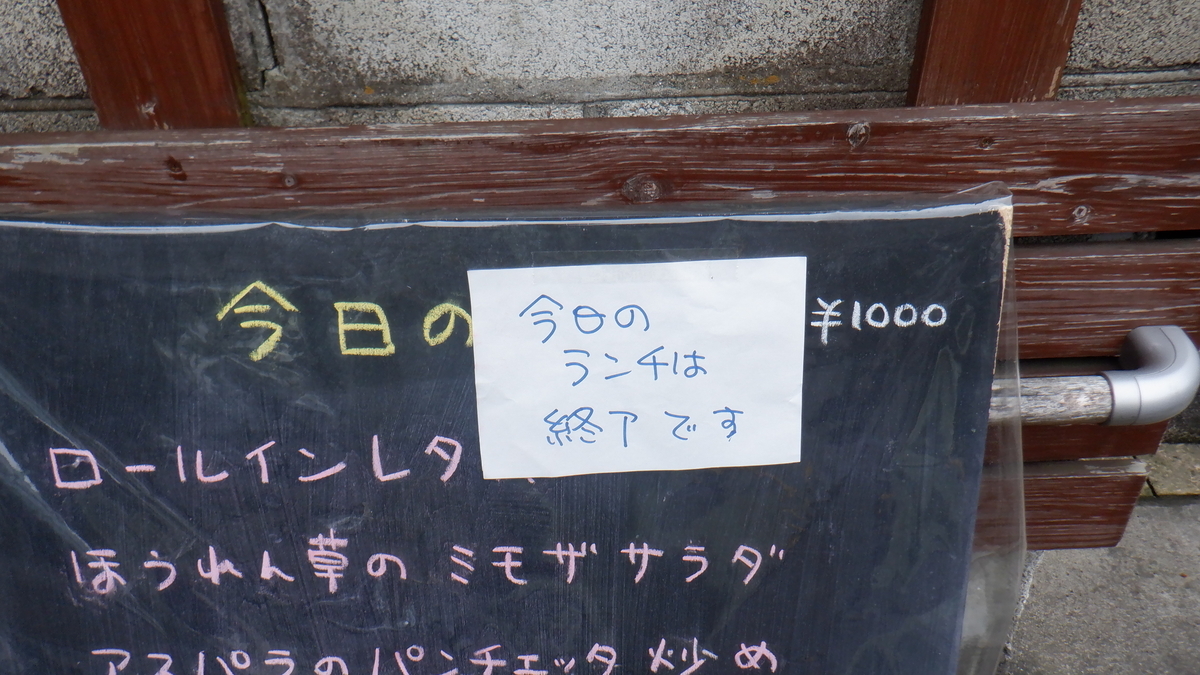 今日の ¥1000
今日の
ランチは
終了です
ロールインレタ
ほうれん草のミモザサラダ
アスパラのパンチェッタ炒め